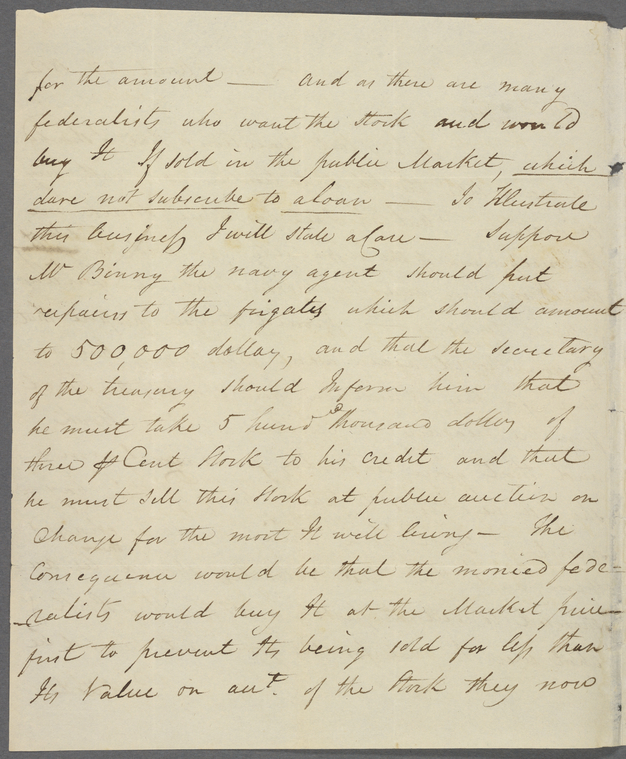 for the amount — and as there are many
federalists who want the stock and would
buy It If sold in the public Market, which
dare not subscribe to a loan — To Illustrate
this business I will state a Case — Suppose
Mr Binny the navy agent should put
repairs to the frigates which should amount
to 500,000 dollars, and that the secretary
of the treasury should Inform him that
he must take 5 hund thousand dollars of
three ⅌ Cent Stock to his credit and that
he must sell this stock at public auction on
Change for the most It will bring — The
Consequence would be that the monied fede-
ralists would buy It at the Market price
first to prevent Its being sold for less than
Its Value on act. of the Stock they now